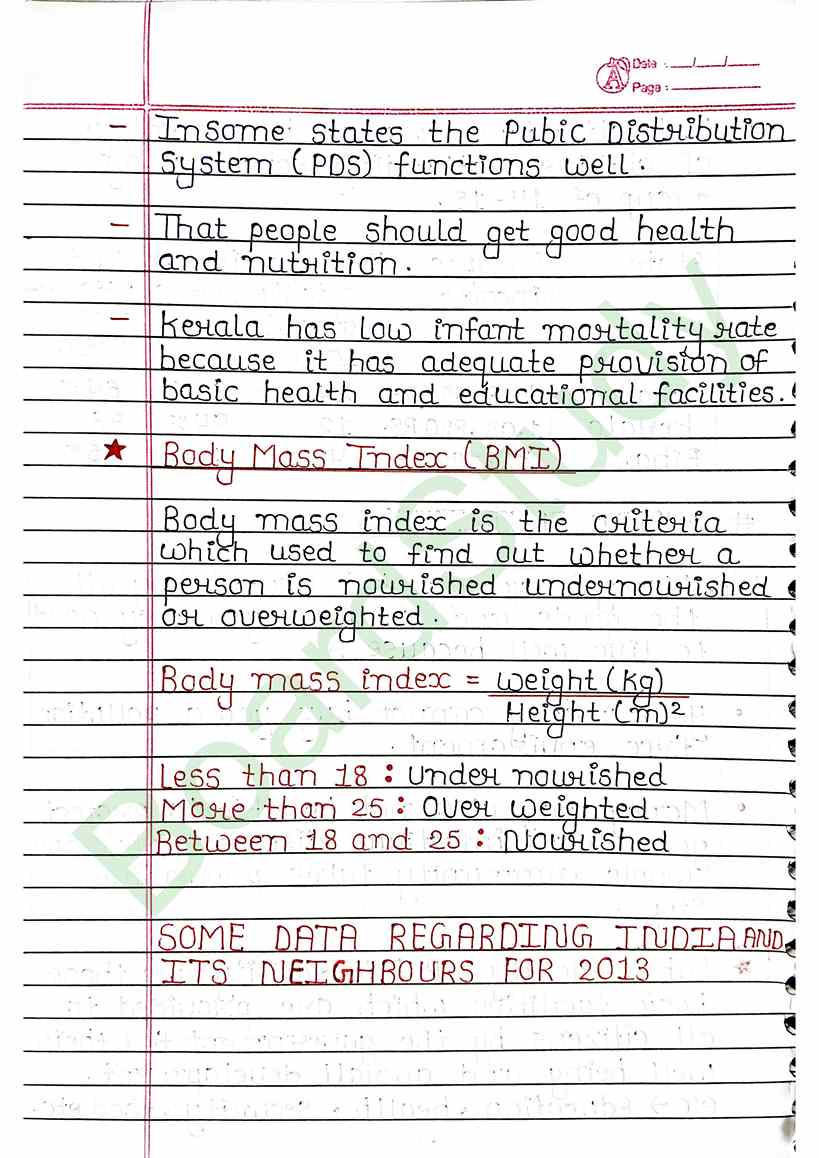 Date : __/__/__
Page : ______
– InSome states the Pubic Distribution
System (PDS) functions well.
– That people should get good health
and nutrition.
– Kerala has low infant mortality rate
because it has adequate provision of
basic health and educational facilities.
★ Body Mass Index (BMI)
Body mass index is the criteria
which used to find out whether a
person is nourished undernourished
or overweighted.
Body mass index = weight (kg)
Height (m)²
Less than 18 : Under nourished
More than 25 : Over weighted
Between 18 and 25 : Nourished
SOME DATA REGARDING INDIA AND
ITS NEIGHBOURS FOR 2013
BoardStudy